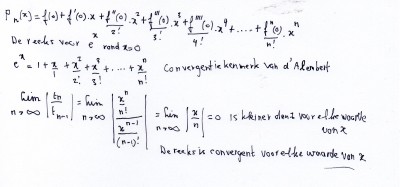 Pₙ(x) = f(0) + f'(0).x + f''(0)/2! .x² + f'''(0)/3! .x³ + f''''(0)/4! .x⁴ + .... + fⁿ(0)/n! .xⁿ
De reeks voor eˣ rond x=0
eˣ = 1 + x/1 + x²/2! + x³/3! + ... + xⁿ/n! Convergentiekenmerk van d'Alembert
lim n→∞ |tn/tn-1| = lim n→∞ |(xⁿ/n!)/(xⁿ⁻¹/(n-1)!)| = lim n→∞ |x/n| = 0 is kleiner dan 1 voor elke waarde
van x
De reeks is convergent voor elke waarde van x